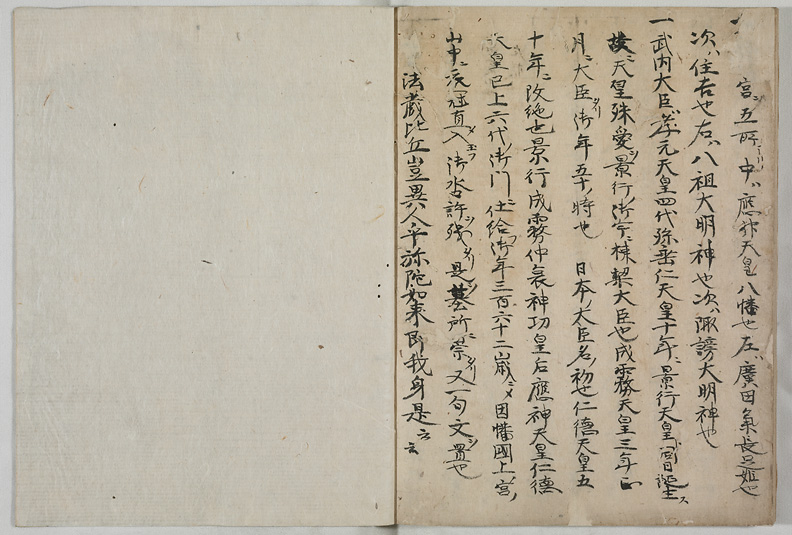 宮五所中ハ應神天皇八幡也左ハ廣田氣長足姫也
次ハ住吉也右ハ八祖大明神也次ハ陬謗大明神也
一武内大臣ハ孝元天皇四代孫垂仁天皇十年ニ景行天皇同日誕生ス
天皇殊愛シ景行ノ御宇ニ棟契大臣也成霧天皇三年正
月ニ大臣御年五十ノ時也 日本ノ大臣名ノ初也仁德天皇五
十年ニ改絶也景行成霧仲哀神功皇后應神天皇仁德
天皇已上六代ノ御門ニ仕給御年三百六十二歳ニメ因幡國上宮ノ
山中ニ衣冠直入御沓許残是墓所崇又一句文置也
法蔵比丘豈異人乎弥陀如来即我身是云云